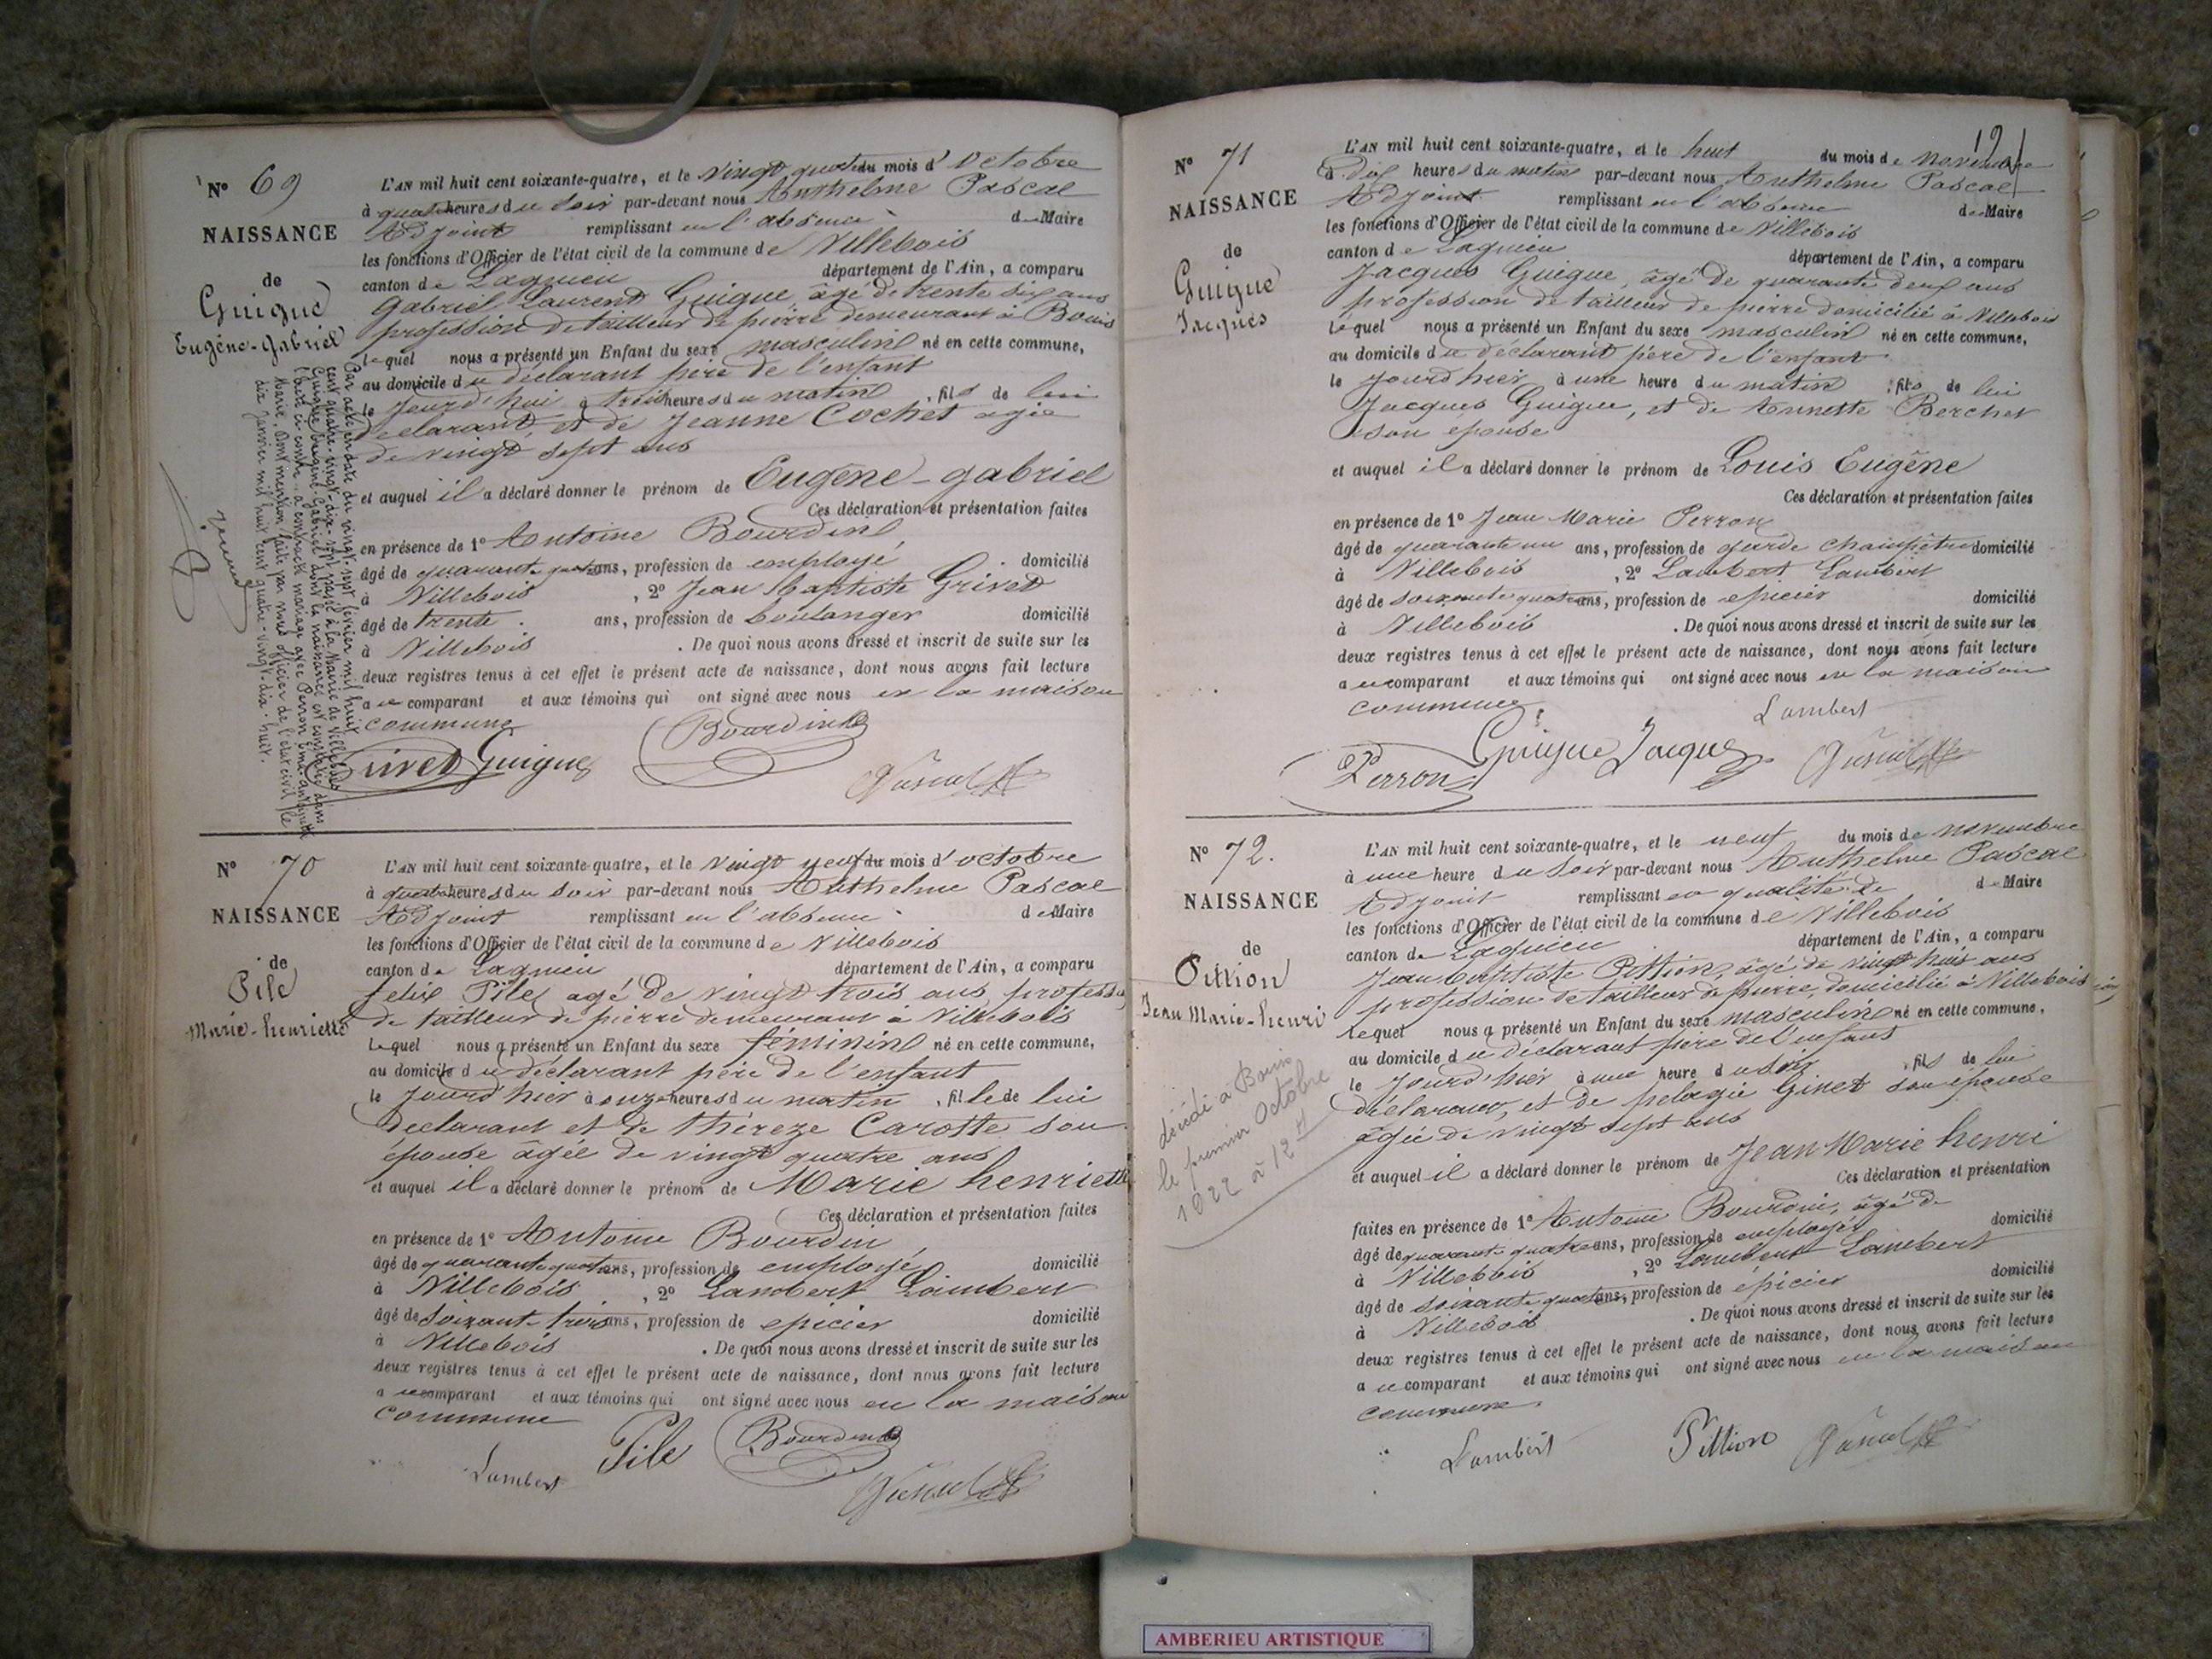 N° 69
NAISSANCE
de
Guigue
Eugène-Gabriel
L'AN mil huit cent soixante-quatre, et le vingt quatre du mois d'octobre
à quatre heures du soir par-devant nous Anthelme Pascal
Adjoint remplissant en l'absence de Maire
les fonctions d'Officier de l'état civil de la commune de Villebois
canton de Lagnieu département de l'Ain, a comparu
Gabriel Laurent Guigue, âgé de trente six ans
profession de tailleur de pierre demeurant à Bouis
lequel nous a présenté un Enfant du sexe masculin né en cette commune,
au domicile du déclarant père de l'enfant
le Jourd'hui à trois heures du matin, fils de lui
déclarant, et de Jeanne Cochet agée
de vingt sept ans
et auquel il a déclaré donner le prénom de Eugène-gabriel
Ces déclaration et présentation faites
en présence de 1° Antoine Bourdin,
âgé de quarante quatre ans, profession de employé domicilié
à Villebois, 2° Jean baptiste Grivet
âgé de trente ans, profession de boulanger domicilié
à Villebois. De quoi nous avons dressé et inscrit de suite sur les
deux registres tenus à cet effet le présent acte de naissance, dont nous avons fait lecture
au comparant et aux témoins qui ont signé avec nous en la maison
commune
Grivet Guigue Bourdin Pascal
Par acte en date du vingt-sept février mil huit
cent quatre-vingt-dix-sept passé à la Mairie de Villebois
Guigue Eugène Gabriel dont la naissance est constatée dans
l'acte ci contre a contracté mariage avec Perron
Marie. Dont mention faite par nous officier de l'état civil le
dix janvier mil huit cent quatre-vingt-dix-huit.
N° 70
NAISSANCE
de
Pile
Marie-henriette
L'AN mil huit cent soixante-quatre, et le vingt neuf du mois d'octobre
à quatre heures du soir par-devant nous Anthelme Pascal
Adjoint remplissant en l'absence de Maire
les fonctions d'Officier de l'état civil de la commune de Villebois
canton de Lagnieu département de l'Ain, a comparu
felix Pile, agé de vingt trois ans, profession
de tailleur de pierre demeurant à Villebois
lequel nous a présenté un Enfant du sexe féminin né en cette commune,
au domicile du déclarant père de l'enfant
le Jourd'hier à onze heures du matin, fille de lui
déclarant et de thérèze Carotte son
épouse âgée de vingt quatre ans
et auquel il a déclaré donner le prénom de Marie henriette
Ces déclaration et présentation faites
en présence de 1° Antoine Bourdin,
âgé de quarante quatre ans, profession de employé domicilié
à Villebois, 2° Lambert Lambert
âgé de soixante trois ans, profession de epicier domicilié
à Villebois. De quoi nous avons dressé et inscrit de suite sur les
deux registres tenus à cet effet le présent acte de naissance, dont nous avons fait lecture
au comparant et aux témoins qui ont signé avec nous en la maison
commune
Lambert Pile Bourdin Pascal
N° 71
NAISSANCE
de
Guigue
Jacques
L'AN mil huit cent soixante-quatre, et le huit du mois de novembre
à dix heures du matin par-devant nous Anthelme Pascal
Adjoint remplissant en l'absence de Maire
les fonctions d'Officier de l'état civil de la commune de Villebois
canton de Lagnieu département de l'Ain, a comparu
Jacques Guigue, âgé de quarante deux ans
profession de tailleur de pierre domicilié à Villebois
lequel nous a présenté un Enfant du sexe masculin né en cette commune,
au domicile du déclarant père de l'enfant
le Jourd'hier à une heure du matin, fils de lui
Jacques Guigue, et de Annette Berchet
son epouse
et auquel il a déclaré donner le prénom de Louis Eugène
Ces déclaration et présentation faites
en présence de 1° Jean Marie Perron
âgé de quarante un ans, profession de garde champêtre domicilié
à Villebois, 2° Lambert Lambert
âgé de soixante quatre ans, profession de epicier domicilié
à Villebois. De quoi nous avons dressé et inscrit de suite sur les
deux registres tenus à cet effet le présent acte de naissance, dont nous avons fait lecture
au comparant et aux témoins qui ont signé avec nous en la maison
commune
Lambert
Perron Guigue Jacques Pascal
N° 72.
NAISSANCE
de
Pittion
Jean Marie-henri
L'AN mil huit cent soixante-quatre, et le neuf du mois de novembre
à une heure du soir par-devant nous Anthelme Pascal
Adjoint remplissant en qualité de de Maire
les fonctions d'Officier de l'état civil de la commune de Villebois
canton de Lagnieu département de l'Ain, a comparu
Jean baptiste Pittion, âgé de vingt huit ans
profession de tailleur de pierre, domicilié à Villebois
lequel nous a présenté un Enfant du sexe masculin né en cette commune,
au domicile du déclarant père de l'enfant
le Jourd'hier à une heure du soir, fils de lui
déclarant, et de pelagie Ginet son épouse
âgée de vingt sept ans
et auquel il a déclaré donner le prénom de Jean Marie henri
Ces déclaration et présentation
faites en présence de 1° Antoine Bourdin, âgé de
âgé de quarante quatre ans, profession de employé domicilié
à Villebois, 2° Lambert Lambert
âgé de soixante quatre ans, profession de épicier domicilié
à Villebois. De quoi nous avons dressé et inscrit de suite sur les
deux registres tenus à cet effet le présent acte de naissance, dont nous avons fait lecture
au comparant et aux témoins qui ont signé avec nous en la maison
commune.
Lambert Pittion Pascal
décédé à Bouis
le premier Octobre
1922 à 12 H
AMBERIEU ARTISTIQUE